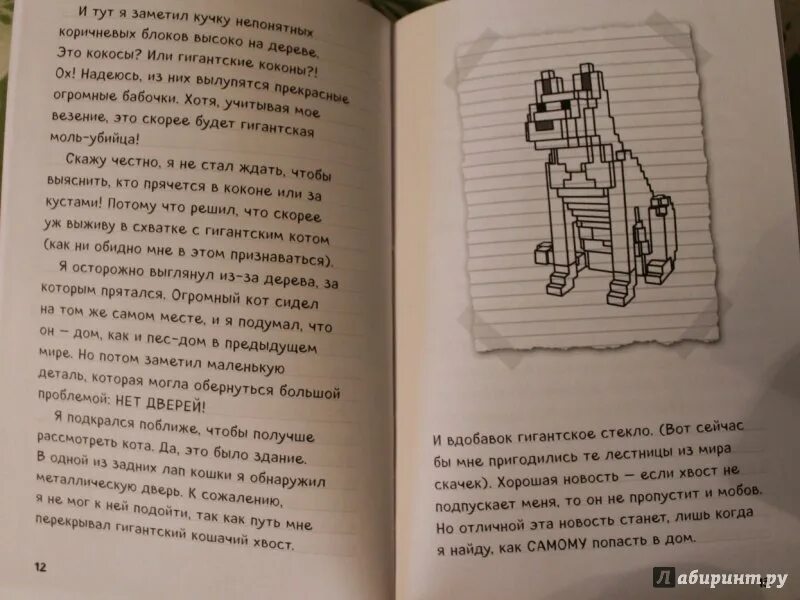 И тут я заметил кучку непонятных
коричневых блоков высоко на дереве.
Это кокосы? Или гигантские коконы?!
Ох! Надеюсь, из них вылупятся прекрасные
огромные бабочки. Хотя, учитывая мое
везение, это скорее будет гигантская
моль-убийца!
Скажу честно, я не стал ждать, чтобы
выяснить, кто прячется в коконе или за
кустами! Потому что решил, что скорее
уж выживу в схватке с гигантским котом
(как ни обидно мне в этом признаваться).
Я осторожно выглянул из-за дерева, за
которым прятался. Огромный кот сидел
на том же самом месте, и я подумал, что
он — дом, как и пес-дом в предыдущем
мире. Но потом заметил маленькую
деталь, которая могла обернуться большой
проблемой: НЕТ ДВЕРЕЙ!
Я подкрался поближе, чтобы получше
рассмотреть кота. Да, это было здание.
В одной из задних лап кошки я обнаружил
металлическую дверь. К сожалению,
я не мог к ней подойти, так как путь мне
перекрывал гигантский кошачий хвост.
12
И вдобавок гигантское стекло. (Вот сейчас
бы мне пригодились те лестницы из мира
скачек). Хорошая новость — если хвост не
подпускает меня, то он не пропустит и мобов.
Но отличной эта новость станет, лишь когда
я найду, как САМОМУ попасть в дом.
Лабиринт.ру